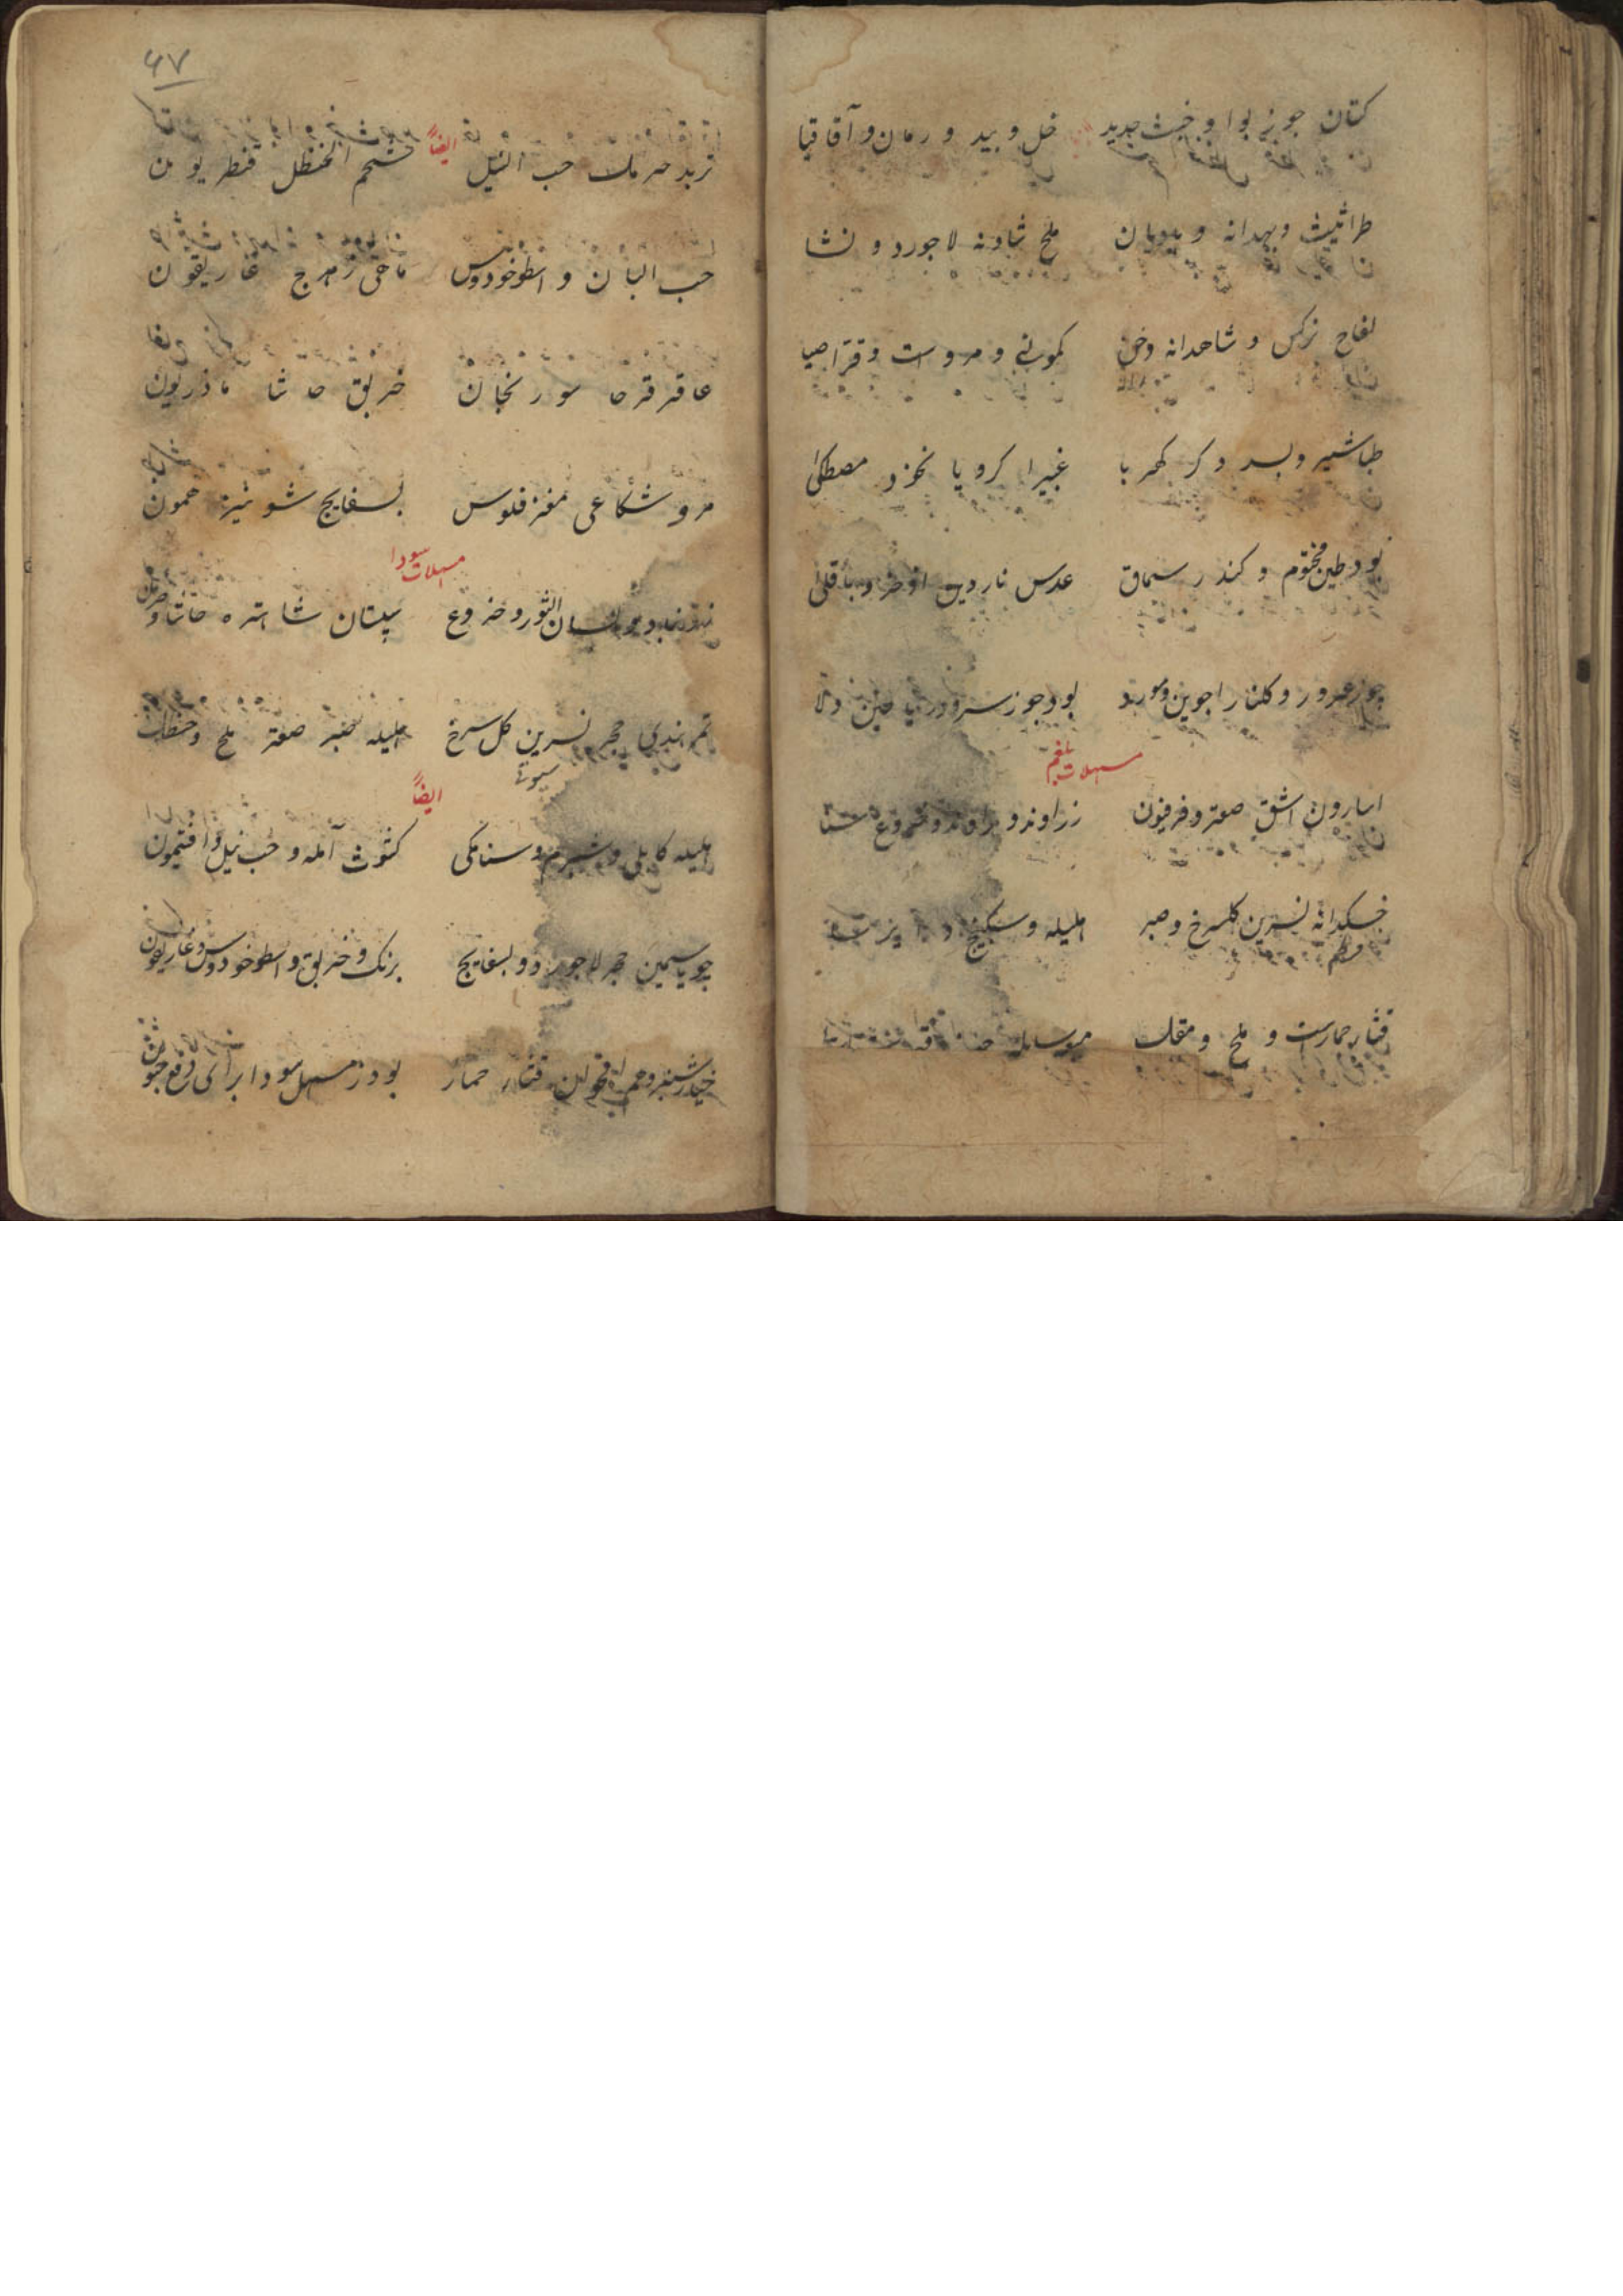 کتان جوز بوا و خبث حدید خل و بید و رمان و آقاقیا
طراثیث و بهدانه و ملح شادنه لاجورد و نشا
لفاح نرکس و شاهدانه وخس کمونی و مروست و قراصیا
طباشیر و بسد و کر کهربا غبیرا کرویا نخود مصطکی
بود طین مختوم و کندر سماق عدس ناردین اذخر و باقلی
چو زعرور و کلنار اجوین و مورد بود جوز سرو
مسهلات بلغم
اسارون اشق صعتر و فرفیون زراوند و
خسکدانه نسرین کلسرخ و صبر هلیله و سکبینج
قثاء حمارست و ملح و مقل
۶۷
تربد حرمل حب النیل ایضاً شحم الحنظل قنطریون
حب البان و اسطوخودوس ماهی زهرج غاریقون
عاقرقرحا سورنجان خربق حاشا ماذریون
مرو شکاعی مغز فلوس بسفایج شونیز همون
مسهلات سودا
لسان الثور و خروع سپستان شاهتره حاشا و
تمر هندی حجر نسرین کل سرخ هلیله صبر صعتر ملح و حنظل
سیوتی
ایضاً
هلیله کابلی و شبرم و سنامکی کثوث آمله و حب نیل و افتیمون
چو یاسمین حجر لاجورد و بسفایج برنک و خربق و اسطوخودوس و غاریقون
خیارشنبر و قثاء حمار بود ز مسهل سودا برای دفع جنون